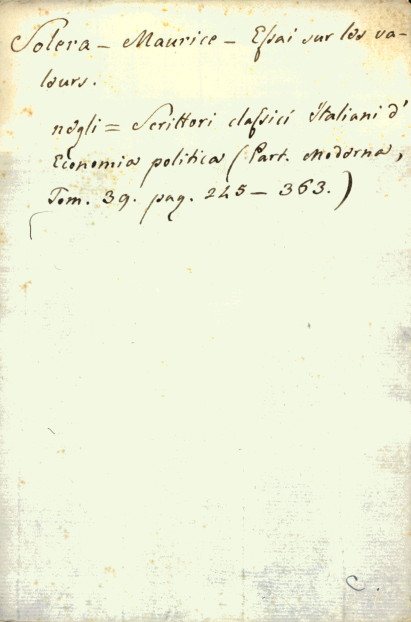 Solera - Maurice - Eſsai sur les va-
leurs.
negli = Scrittori claſsici Italiani d'
Economia politica (Part. Moderna,
Tom. 39. pag. 245 - 363.)
C.